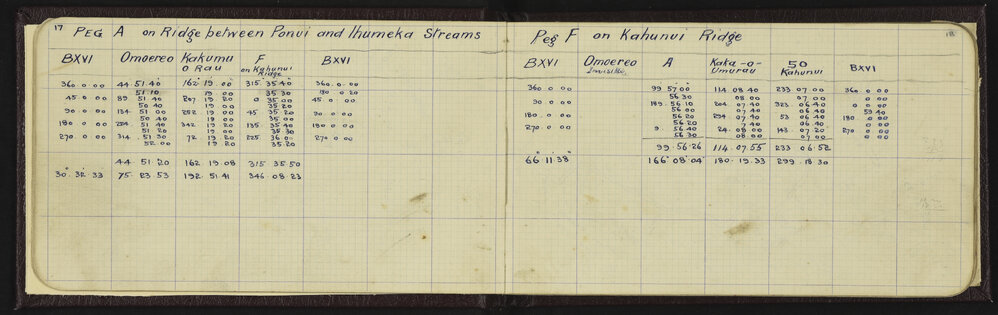 17
PEG A on Ridge between Ponui and Ihumeka Streams
BXVI Omoereo Kakumu o Rau F on Kahunui Ridge BXVI
360 0 00 44 51 40 162 19 00 315 35 40 360 0 00
51 10 19 00 35 30 180 0 20
45 0 00 89 51 40 207 19 20 0 35 00 45 0 00
50 40 19 00 35 20
90 0 00 134 51 00 252 19 00 45 35 20 90 0 00
50 40 19 00 35 00
180 0 00 224 51 40 342 19 20 135 35 40 180 0 00
51 20 19 00 35 30
270 0 00 314 51 30 72 19 20 225 36 00 270 0 00
52 00 19 20 35 20
44 51 20 162 19 08 315 35 50
30 32 33 75 23 53 192 51 41 346 08 23
18
Peg F on Kahunui Ridge
BXVI Omoereo Invisible A Kaka-o-Umurau 50 Kahunui BXVI
360 0 00 99 57 00 114 08 40 233 07 00 360 0 00
56 30 08 00 07 00 0 00
90 0 00 189 56 10 204 07 40 323 06 40 0 00
56 00 07 40 06 40 59 40
180 0 00 56 20 294 07 40 53 06 40 180 0 00
56 20 7 40 06 40 0 00
270 0 00 9 56 40 24 08 00 143 07 20 270 0 00
56 30 08 00 07 00 0 00
99 56 26 114 07 55 233 06 52
66 11 38 166 08 04 180 19 33 299 18 30